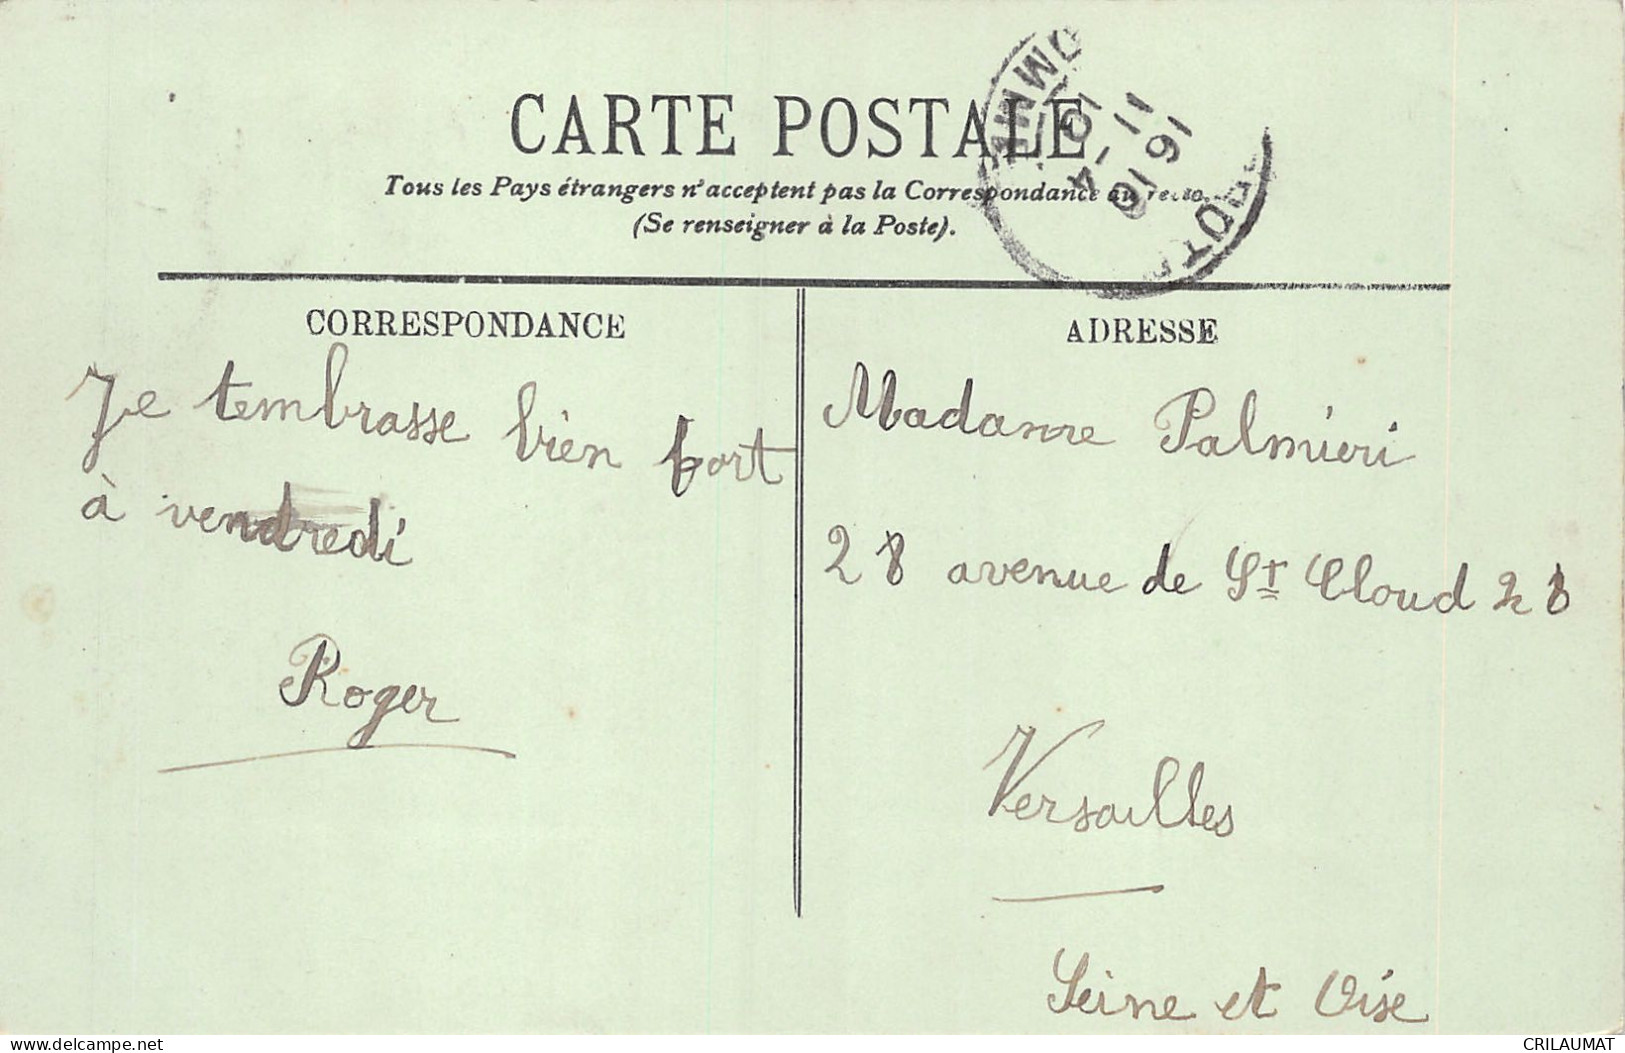 CARTE POSTALE
Tous les Pays étrangers n'acceptent pas la Correspondance au recto
(Se renseigner à la Poste).
CORRESPONDANCE
Je tembrasse bien fort
à vendredi
Roger
ADRESSE
Madame Palmieri
28 avenue de St Cloud 28
Versailles
Seine et Oise
10-4
11
16 10
delcampe.net
CRILAUMAT